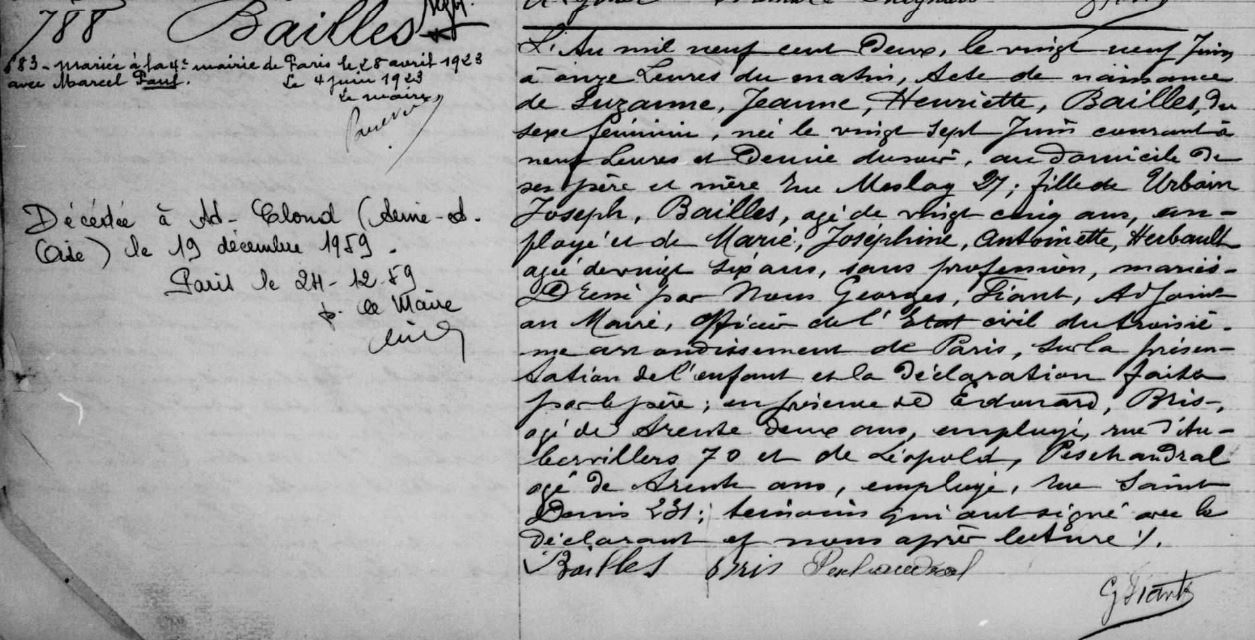 788 Bailles
683 - mariée à la 4e mairie de Paris le 28 avril 1923
avec Marcel Paul. Le 4 juin 1923
Le maire,
Décédée à St-Cloud (Seine-et-
Oise) le 19 décembre 1959
Paris le 24-12-59
p. le Maire
L'An mil neuf cent Deux, le vingt neuf Juin
à onze heures du matin, Acte de naissance
de Suzanne, Jeanne, Henriette, Bailles, du
sexe féminin, née le vingt sept Juin courant à
neuf heures et Demie du soir, au domicile de
ses père et mère rue Meslay 27; fille de Urbain
Joseph, Bailles, agé de vingt cinq ans, em-
ployé et de Marie, Joséphine, Antoinette, Herbault
agée de vingt six ans, sans profession, mariés-
Dressé par Nous Georges, Fiant, Adjoint
au Maire, officier de l'Etat civil du troisiè-
me arrondissement de Paris, sur la présen-
tation de l'enfant et la Déclaration faites
par le père; en présence de Edouard, Bris-,
agé de trente deux ans, employé, rue d'Au-
bervilliers 70 et de Léopold, Peschaudral
agé de trente ans, employé, rue Saint
Denis 231; témoins qui ont signé avec le
déclarant et nous après lecture /.
Bailles Bris Peschaudral
G Fiant